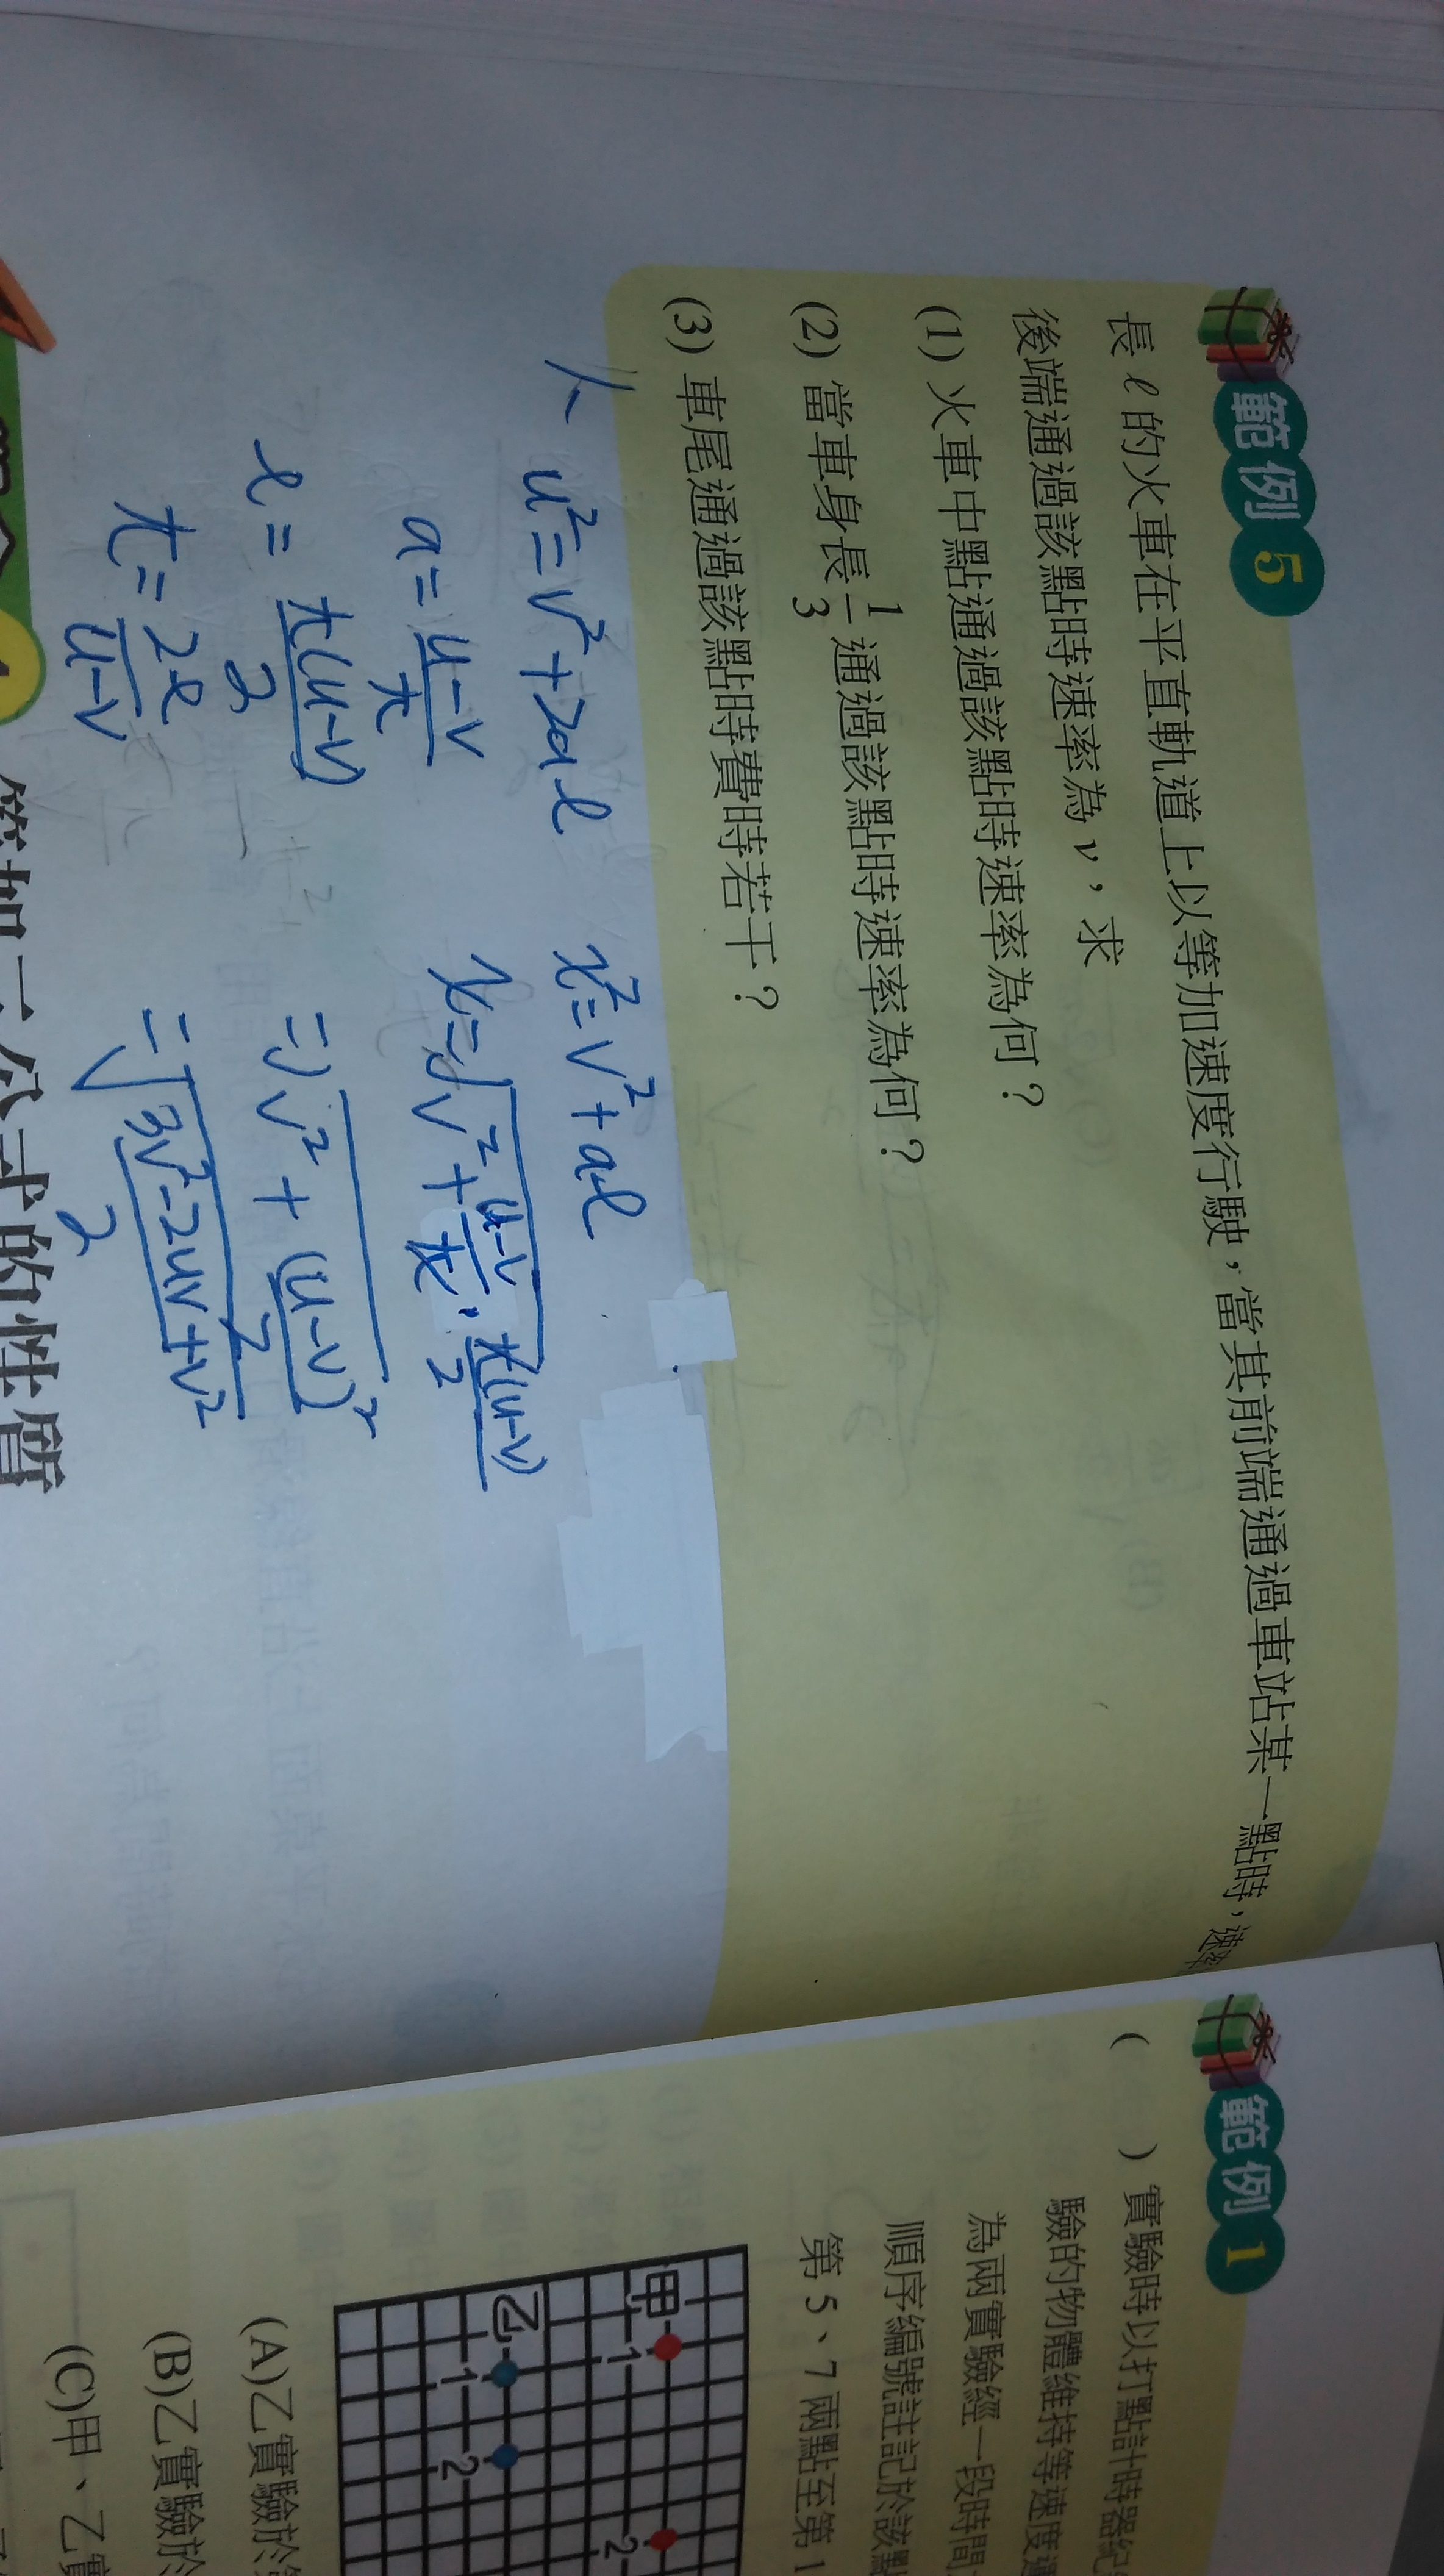 範例5
長ℓ的火車在平直軌道上以等加速度行駛，當其前端通過車站某一點時，速率
後端通過該點時速率為v，求
(1) 火車中點通過該點時速率為何？
(2) 當車身長1/3通過該點時速率為何？
(3) 車尾通過該點時費時若干？
u²=v²+2al
a=(u-v)/t
l=t(u-v)/2
t=2l/(u-v)
x²=v²+al
x=√(v²+(u-v)/t·t(u-v)/2)
=√(v²+(u-v)²/2)
=√((3v²-2uv+v²)/2)
等加
公式的性質
範例1
( ) 實驗時以打點計時器紀
驗的物體維持等速度
為兩實驗經一段時間
順序編號註記於該
第5、7兩點至第1
甲
1
2
乙
1
2
(A)乙實驗於
(B)乙實驗於
(C)甲、乙